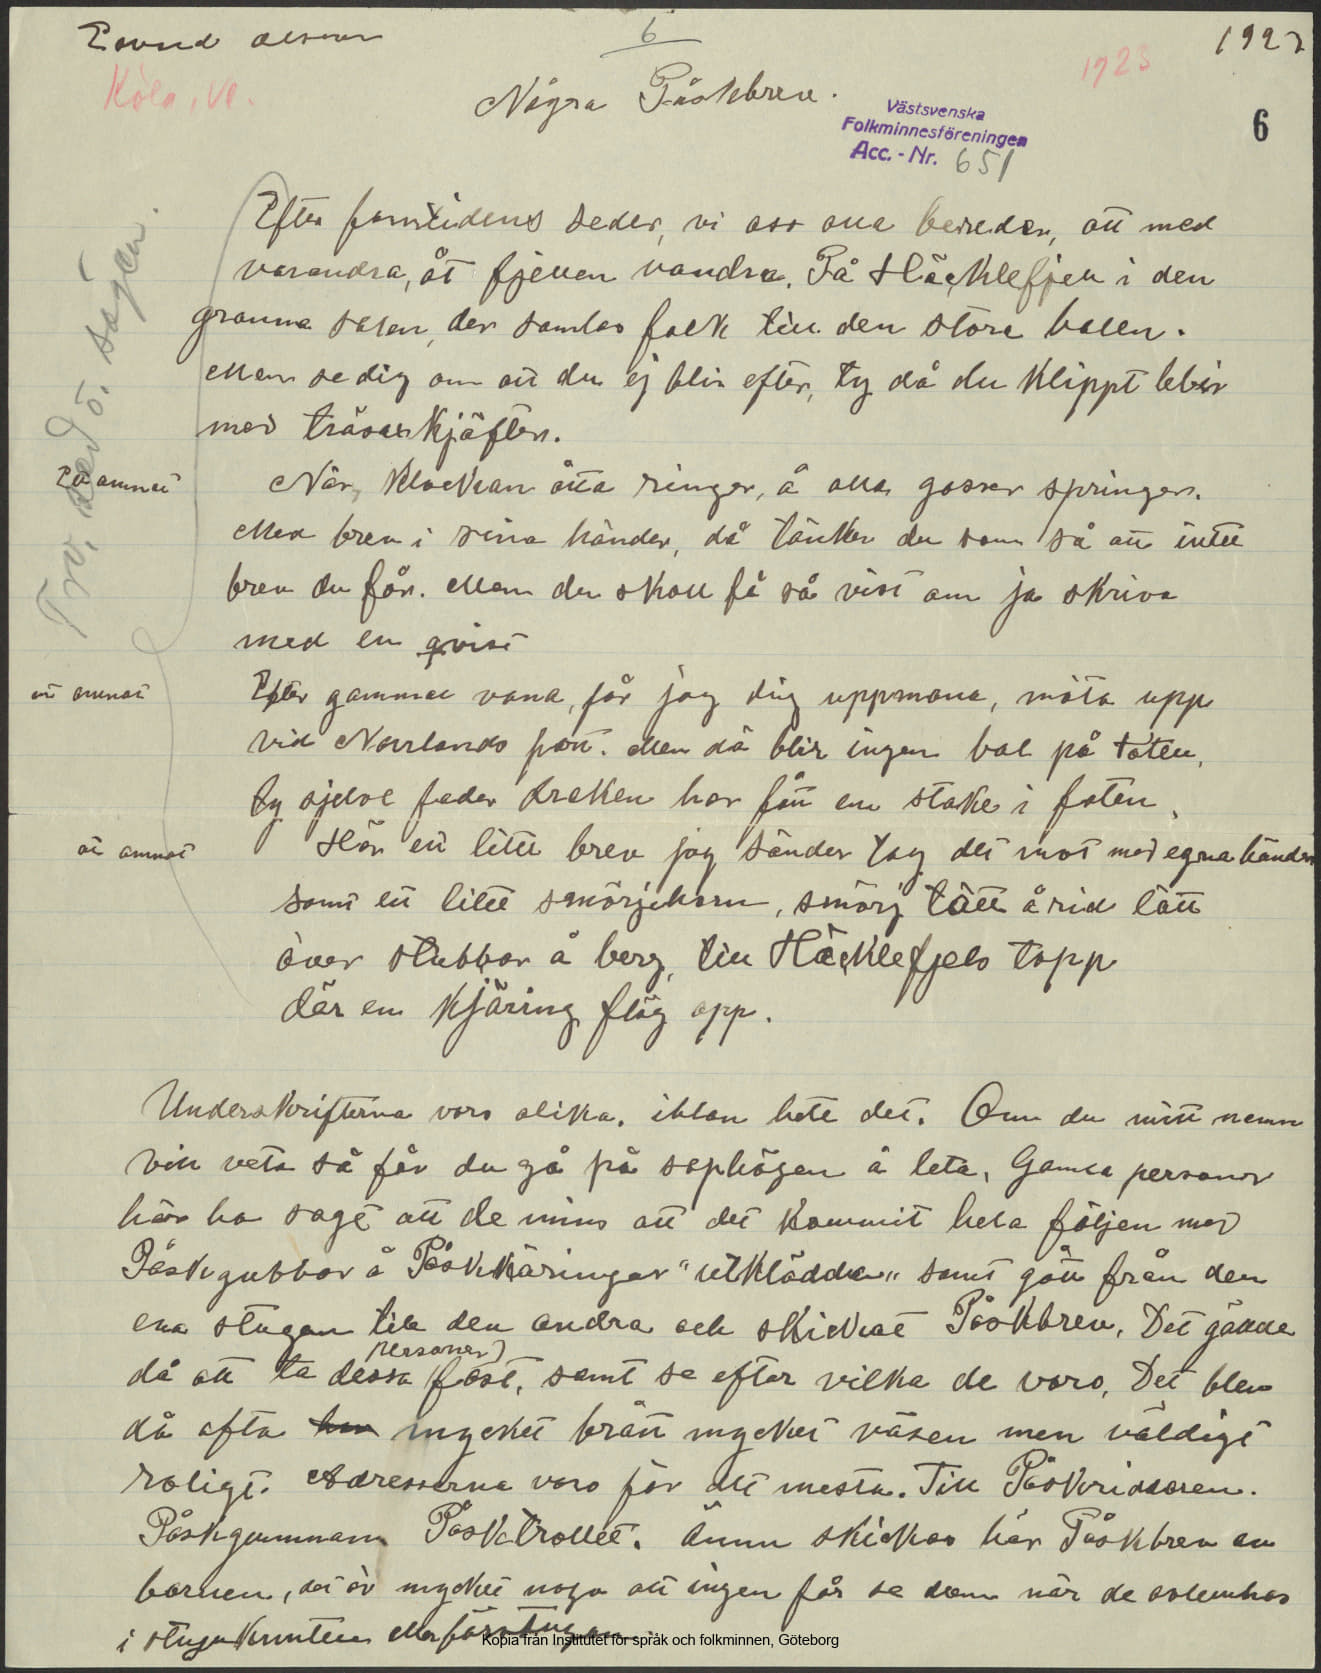 6
1927
Köla, Vl.
1923
Några Påskbrev.
Västsvenska
Folkminnesföreningen
Acc. - Nr. 651
6
Tro, sed o. sägen.
Efter forntidens seder, vi oss alla bereder, att med
varandra, åt fjellen vandra. På Häcklefjell i den
granna salen, der samlas folk till den stora balen.
Men se dig om att du ej blir efter, ty då du klippt blir
med träsaxkjäften.
Ett annat
När klockan åtta ringer, å alla gosser springer.
Med brev i sina händer, då tänker du som så att intet
brev du får. Men du skall få så vist om ja skriva
med en qvist
ett annat
Efter gammal vana, får jag dig uppmana, möta upp
vid Norrlands port. Men då blir ingen bal på toten,
ty sjelve fader draken har fått en stake i foten.
ett annat
Här ett litet brev jag sänder tag det mot med egna händer
samt ett litet smörjehorn, smörj tätt å rid lätt
över stubbar å berg, till Häcklefjels topp
där en kjäring flög opp.
Underskrifterna voro olika. iblan hete det. Om du mitt namn
vill veta så får du gå på sophögen å leta. Gamla personer
här ha sagt att de mins att det kommit hela följen med
Påskgubbar å Påskkäringar "utklädda" samt gått från den
ena stugan till den andra och skickat Påskbrev. Det gällde
personer)
då att ta dessa fast, samt se efter vilka de voro. Det blev
då ofta mycket brått mycket väsen men väldigt
roligt. Adresserna voro för det mesta. Till Påskriddaren.
Påskgumman Påsktrollet. Ännu skickas här Påskbrev av
barnen, det är mycket noga att ingen får se dem när de
i stuguknuten eller förstugan.
Kopia från Institutet för språk och folkminnen, Göteborg